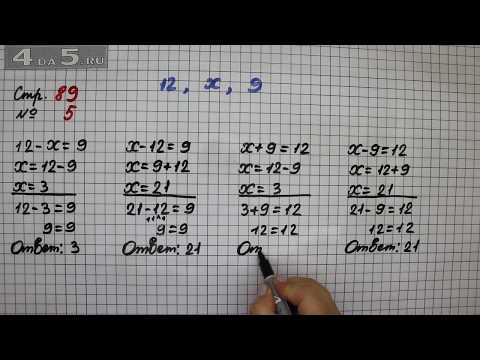 4 DA 5.RU
Стр. 89
№ 5
12, x, 9
12-x=9
x=12-9
x=3
12-3=9
9=9
Ответ: 3
x-12=9
x=9+12
x=21
21-12=9
9=9
Ответ: 21
x+9=12
x=12-9
x=3
3+9=12
12=12
От
x-9=12
x=12+9
x=21
21-9=12
12=12
Ответ: 21